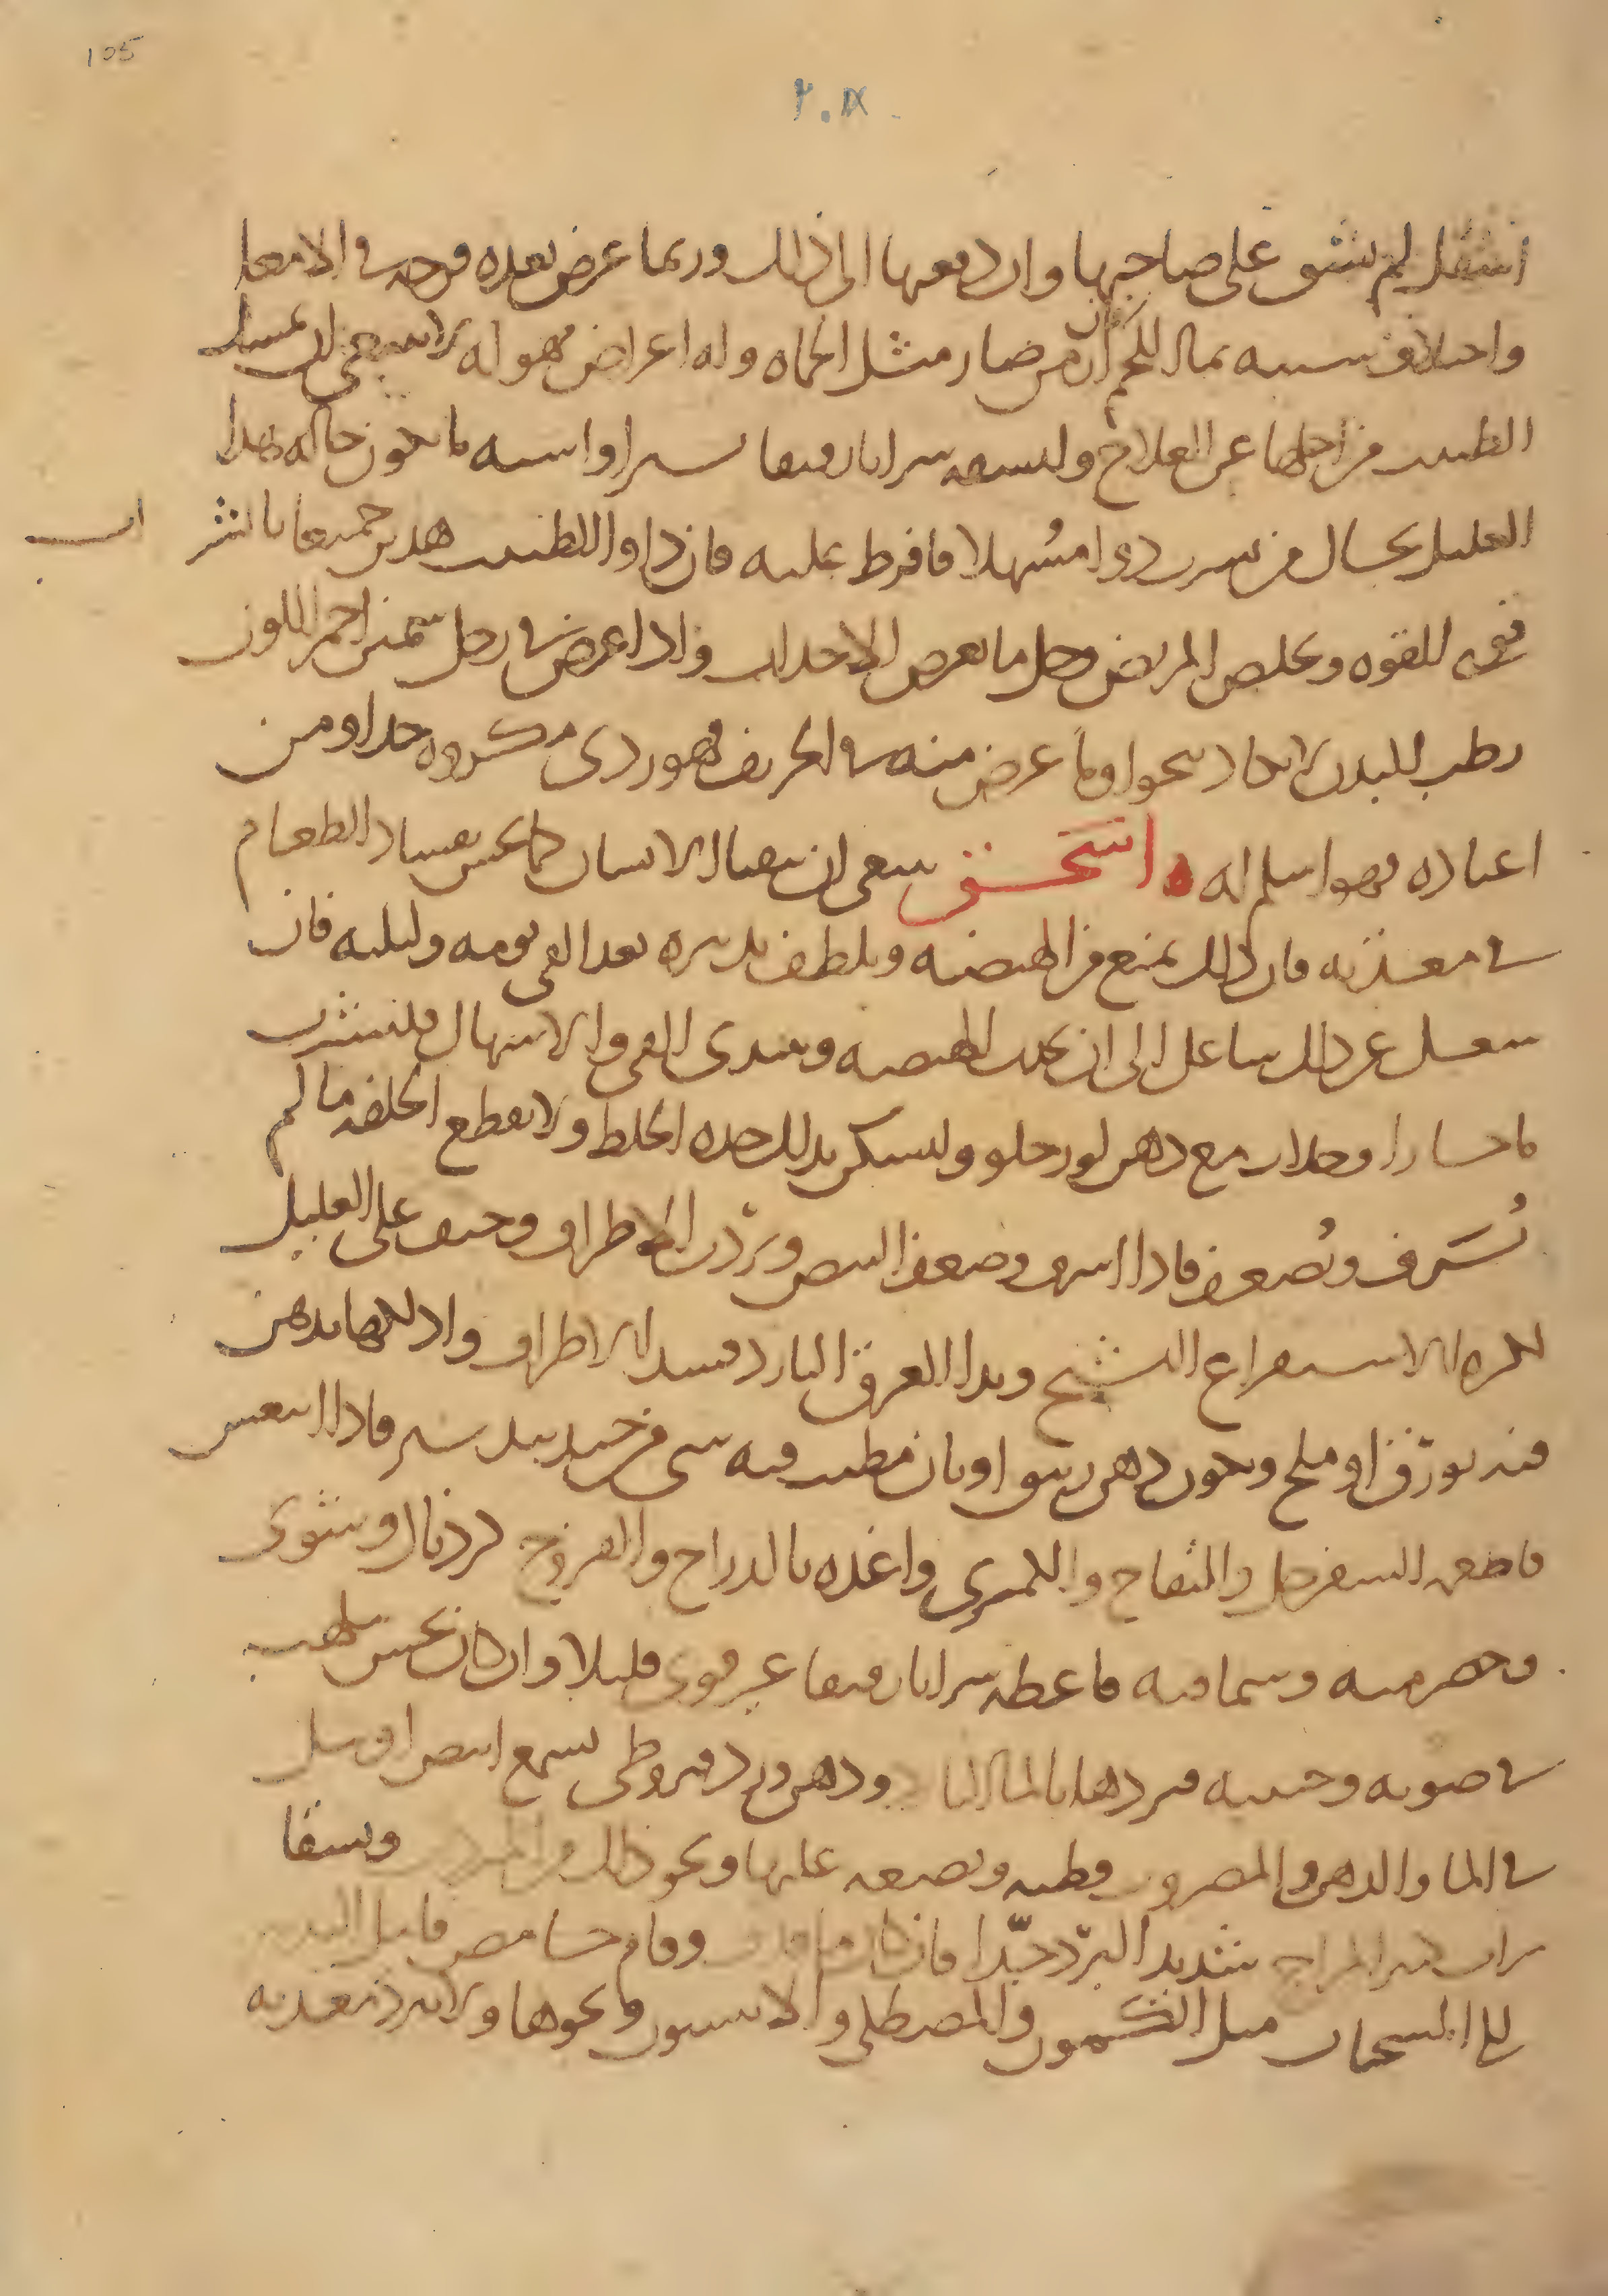 105
٢٠٨
انتقل لم يشق على صاحبها وان دفعها الى ذلك وربما عرض بعده قرحه في الامعا
واختلاف شبيه بما اللحم ان من صار مثل الحماه وله اعراض مهوله لا ينبغي ان تمسك
الطبيب من اجلها عن العلاج وليسقه شرابا رقيقا يسيرا واشبه ما تكون حاله هذا
العليل بحال من شرب دوا مسهلا فافرط عليه فان داوا الطبيب هذين جميعا بالشراب
قوى القوه وتخلص المريض وجل ما تعرض الاحداث واذا عرض في رجل سمين احمر اللون
رطب البدن لا يكاد ينجوا وما عرض منه في الخريف فهو ردى مكروه جدا ومن
اعتاده فهو اسلم له ه اسحق ينبغى ان يتقيا الانسان كما يحس بفساد الطعام
في معدته فان ذلك يمنع من الهيضه ويلطف تدبيره بعد القى يومه وليلته فان
شغل عن ذلك شاغل الى ان تحدث الهيضه ويبتدى القى والاسهال فليشرب
ما حارا وجلاب مع دهن لوز حلو وليسكن بذلك حده الخلط ولا تقطع الخلفه ما لم
تسرف وتضعف فاذا اسرف وضعف النبض وبردت الاطراف وخيف على العليل
لكثره الاستفراغ التشنج وبدا العرق البارد فشد الاطراف وادلكها بدهن
فيه بورق او ملح وتكون دهن زنبق او بان مطيب فيه شى من جندبيدستر فاذا انتعش
فاطعمه السفرجل والتفاح والكمثرى واغذه بالدراج والفروج كردناك ومشوى
وحصرميه وسماقيه فاعطه شرابا رقيقا غير قوى قليلا وان كان يحس بلهيب
في صوبه وجنبيه فبردها بالما البارد ودهن ورد قيروطى بشمع ابيض او بل
في الما والدهن المضروب قطنه وتضعه عليها ونحو ذلك من وسقا
شراب كثير المزاج شديد البرد جدا فان كان وقام حسا مص فامل التدبير
الى المسخنات مثل الكمون والمصطكى والانيسون ونحوها ولا تبرد معدته